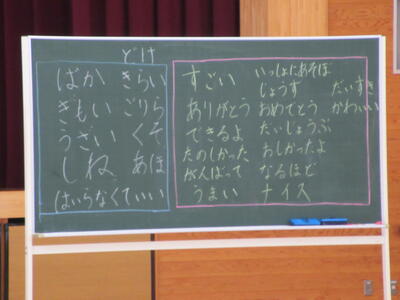 どけ
ばか きらい
きもい ごりら
うざい くそ
しね あほ
はいらなくていい
すごい いっしょにあそぼ
じょうす だいすき
ありがとう おめでとう かわいい
できるよ だいじょうぶ
たのしかった おしかったよ
がんばって なるほど
うまい ナイス